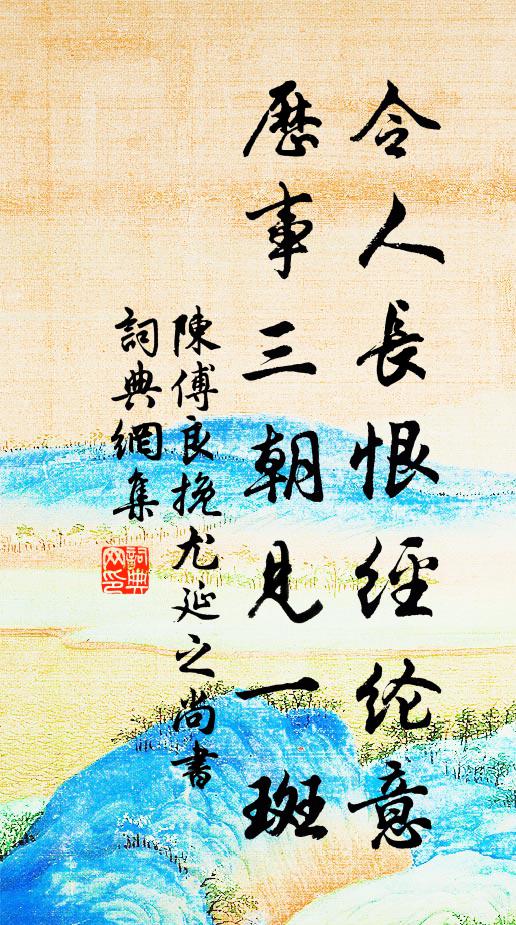 令人長恨經纶意
歷事三朝見一斑
陳傅良挽尤延之尚書
詞典網集
詞典
网印